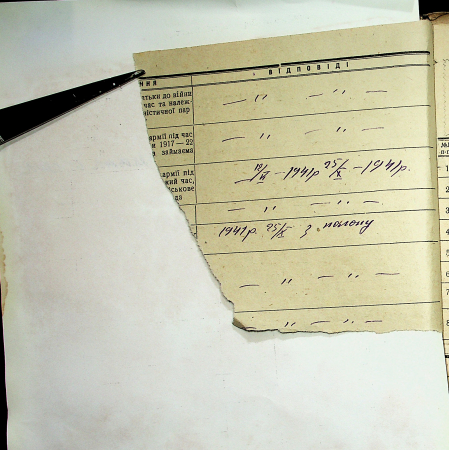 ВІДПОВІДІ
ння
атьки до війни
час та належ-
ністичної пар
— " — " —
армії під час
и 1917 — 22
займаєма
— " — " —
армії під
кий час,
йськове
да
— 1941р 25/X — 1941р.
— " — " —
1941р 25/X з полону
— " — " —
" — " —
№№
п-п
1
2
3
4
5
6
7
8